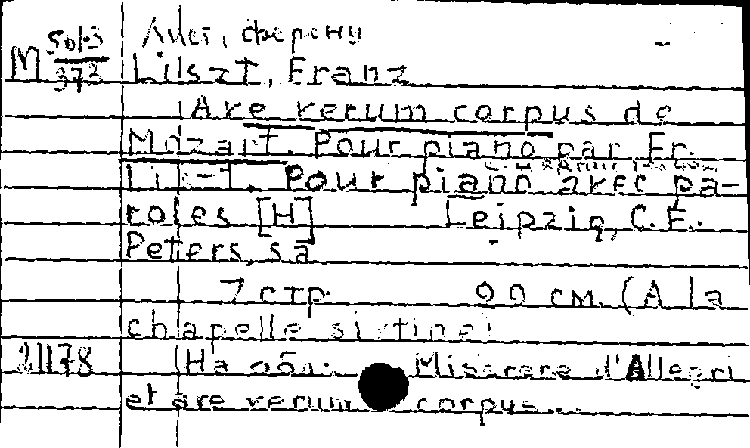 Лист, Ференц
М 50/-3
373
Liszt, Franz
Ave verum corpus de
Mozart. Pour piano par Fr.
Liszt. Pour piano avec pa-
roles [Н] Leipzig, C.F.
Peters, s a
7 стр. 00 см. (A la
chapelle sixtine)
21178 На обл: Miserere d'Allegri
et ave verum corpus...